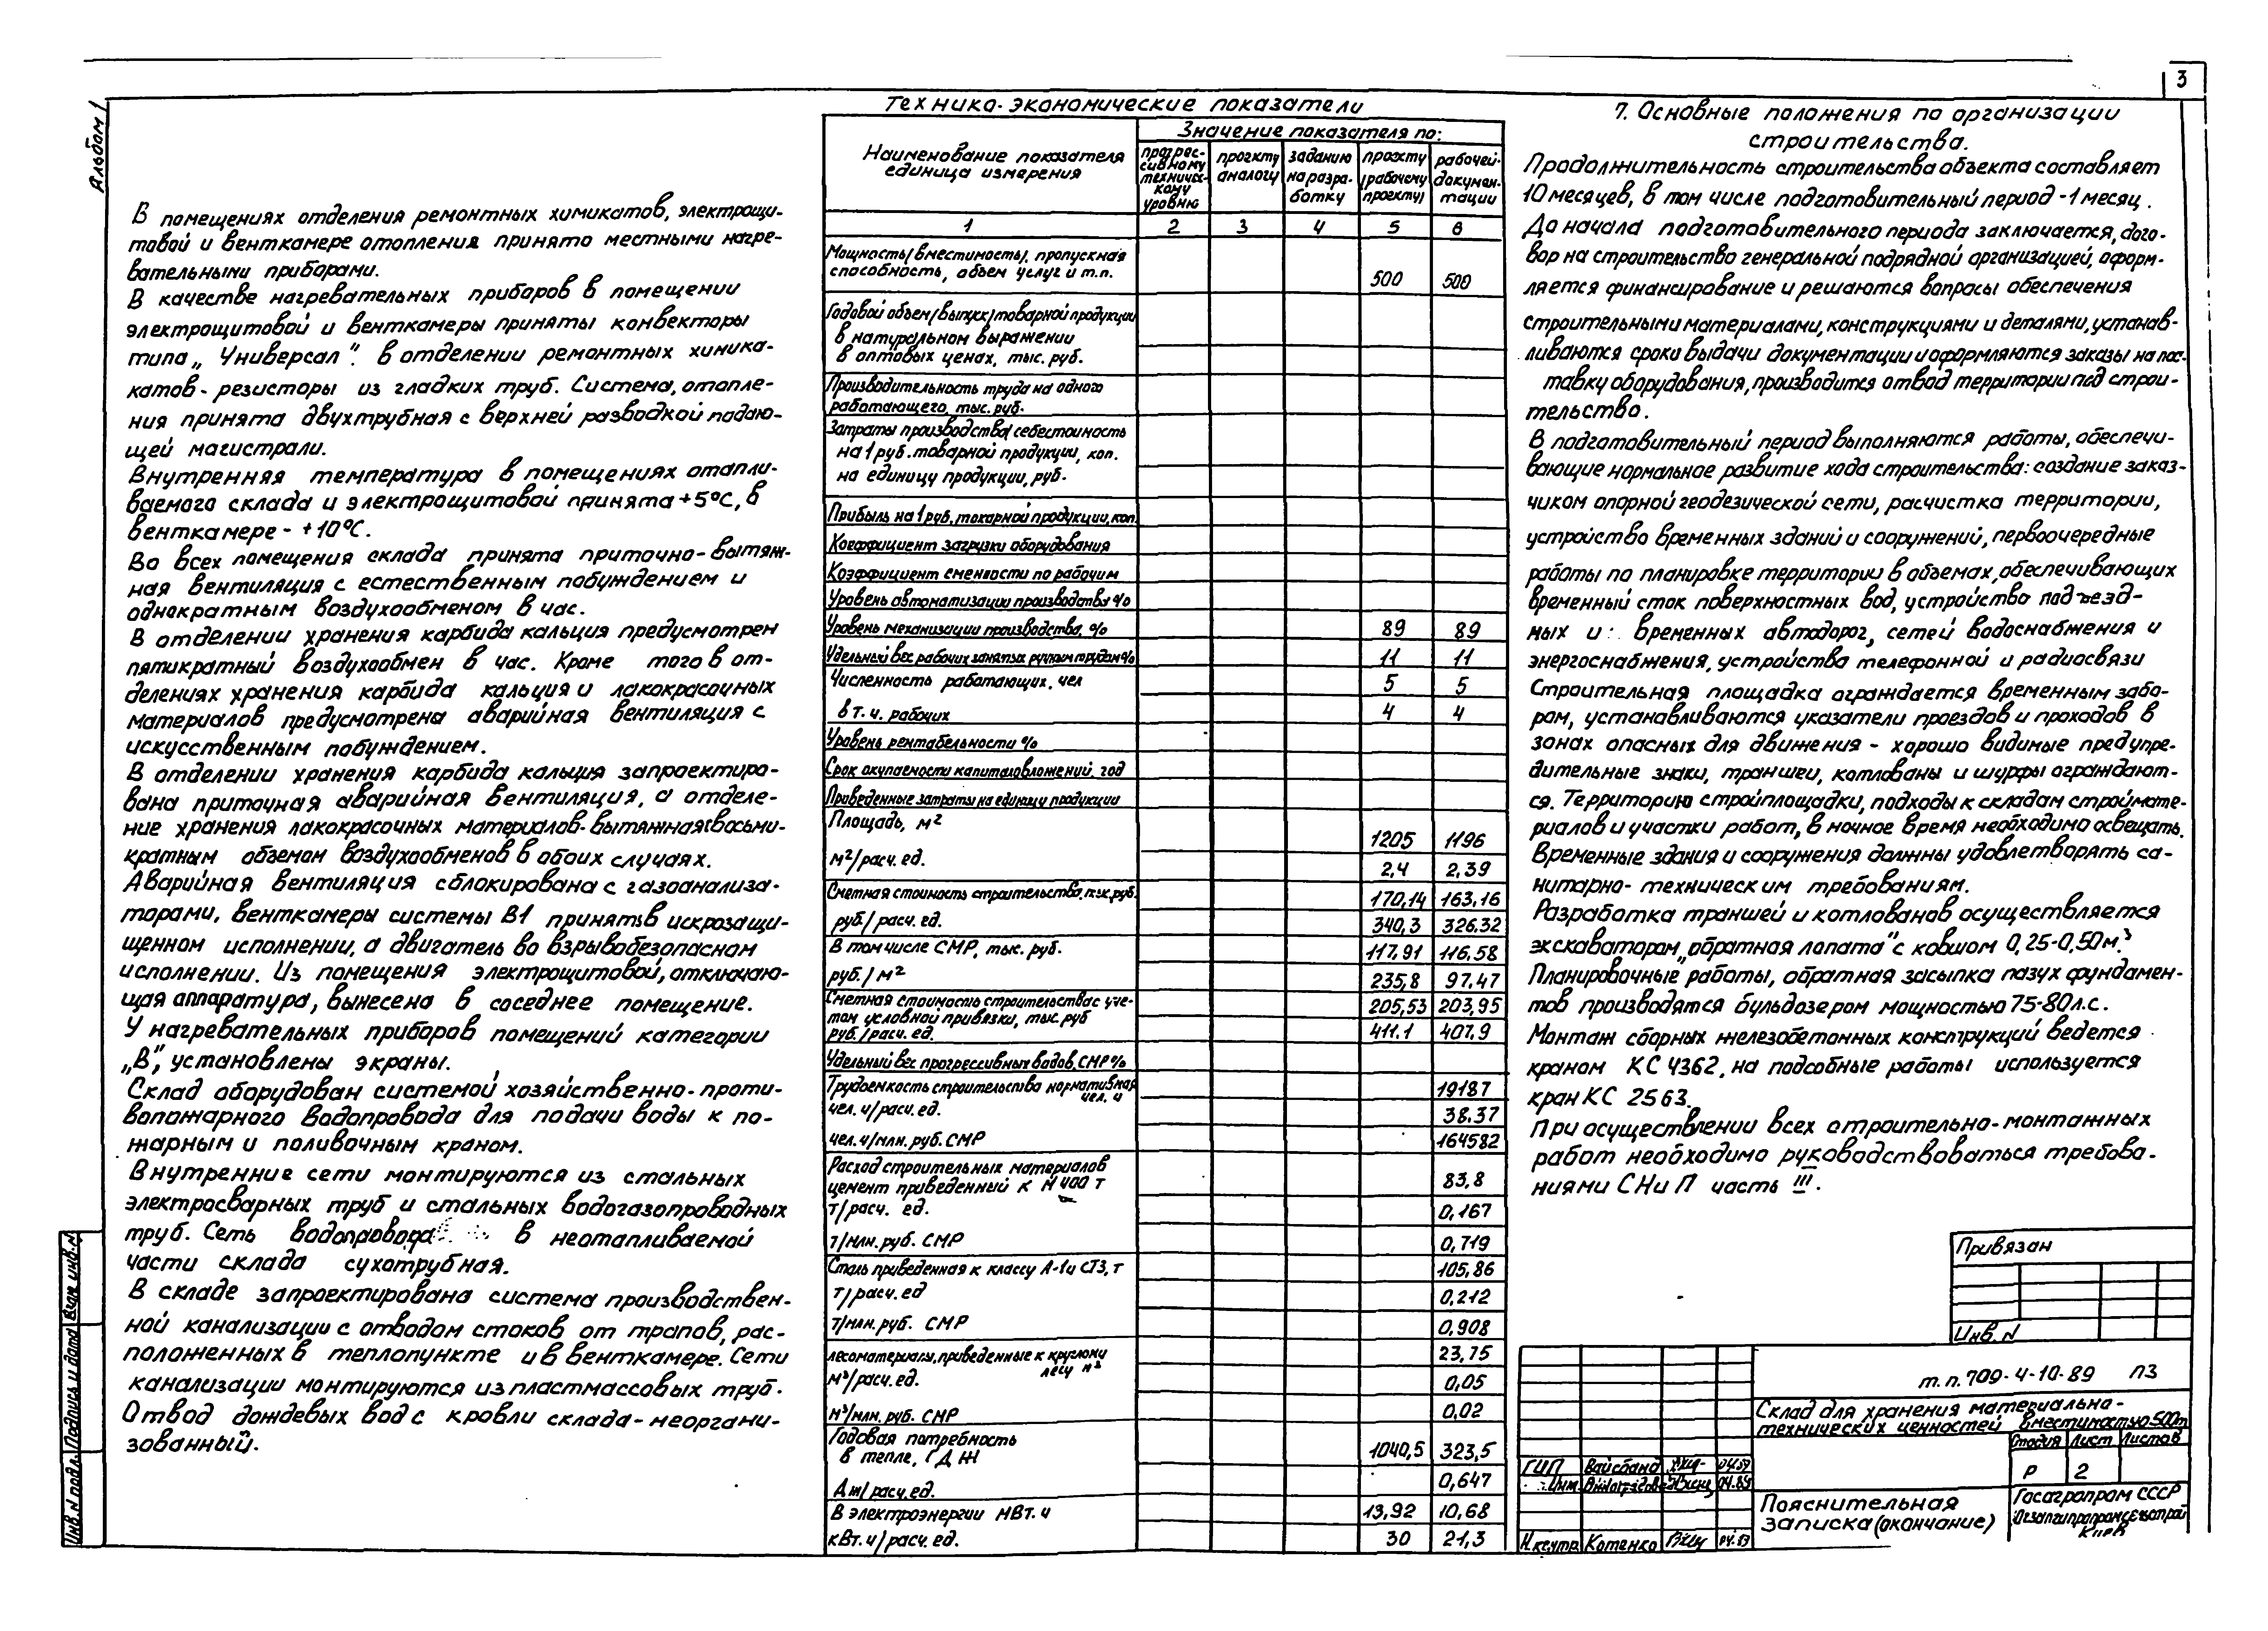 3
Альбом 1
В помещениях отделения ремонтных химикатов, электрощи-
товой и венткамере отопления принято местными нагре-
вательными приборами.
В качестве нагревательных приборов в помещении
электрощитовой и венткамеры приняты конвекторы
типа „Универсал". в отделении ремонтных химика-
катов - резисторы из гладких труб. Система, отопле-
ния принята двухтрубная с верхней разводкой падаю-
щей магистрали.
Внутренняя температура в помещениях отапли-
ваемого склада и электрощитовой принята +5°С, в
венткамере - +10°С.
Во всех помещения склада принята приточно-вытяж-
ная вентиляция с естественным побуждением и
однократным воздухообменом в час.
В отделении хранения карбида кальция предусмотрен
пятикратный воздухообмен в час. Кроме того в от-
делениях хранения карбида кальция и лакокрасочных
материалов предусмотрена аварийная вентиляция с
искусственным побуждением.
В отделении хранения карбида кальция запроектиро-
вана приточная аварийная вентиляция, а отделе-
ние хранения лакокрасочных материалов-вытяжная(восьми-
кратным объемом воздухообменов в обоих случаях.
Аварийная вентиляция сблокирована с газоанализа-
торами, венткамеры системы В1 принять в искрозащи-
щенном исполнении, а двигатель во взрывобезопасном
исполнении. Из помещения электрощитовой, отключаю-
щая аппаратура, вынесена в соседнее помещение.
У нагревательных приборов помещений категории
„В", установлены экраны.
Склад оборудован системой хозяйственно-проти-
вопожарного водопровода для подачи воды к по-
жарным и поливочным краном.
Внутренние сети монтируются из стальных
электросварных труб и стальных водогазопроводных
труб. Сеть водопровода в неотапливаемой
части склада сухотрубная.
В складе запроектирована система производствен-
ной канализации с отводом стоков от трапов, рас-
положенных в теплопункте и в венткамере. Сети
канализации монтируются из пластмассовых труб.
Отвод дождевых вод с кровли склада-неоргани-
зованный.
Технико-экономические показатели
Наименование показателя единица измерения | Значение показателя по:
прогрес-сивному техничес-кому уровню | проекту аналогу | заданию на разра-ботку | проекту (рабочему проекту) | рабочей докумен-тации
1 2 3 4 5 6
Мощность(вместимость), пропускная
способность, объем услуг и т.п. 500 500
Годовой объем(выпуск)товарной продукции
в натуральном выражении
в оптовых ценах, тыс. руб.
Производительность труда на одного
работающего, тыс. руб.
Затраты производства(себестоимость
на 1 руб. товарной продукции, коп.
на единицу продукции, руб.
Прибыль на 1 руб. товарной продукции, коп.
Коэффициент загрузки оборудования
Коэффициент сменности по рабочим
Уровень автоматизации производства %
Уровень механизации производства, % 89 89
Удельный вес рабочих занятых ручным трудом % 11 11
Численность работающих, чел 5 5
в т. ч. рабочих 4 4
Уровень рентабельности %
Срок окупаемости капиталовложений, год
Приведенные затраты на единицу продукции
Площадь, м² 1205 1196
м²/расч. ед. 2,4 2,39
Сметная стоимость строительства, тыс. руб. 170,14 163,16
руб/расч. ед. 340,3 326.32
В том числе СМР, тыс. руб. 117,91 116,58
руб./м² 235,8 97.47
Сметная стоимость строительства с уче- 205,53 203,95
том условной привязки, тыс. руб
руб./расч. ед. 411.1 407.9
Удельный вес прогрессивных видов, СМР %
Трудоемкость строительства нормативная чел. ч 19187
чел. ч/расч. ед. 38.37
чел. ч/млн. руб. СМР 164582
Расход строительных материалов
цемент приведенный к М 400 т 83,8
т/расч. ед. 0,167
т/млн. руб. СМР 0,719
Сталь приведенная к классу А-1 и СТ3, т 105,86
т/расч. ед 0,212
т/млн. руб. СМР 0,908
лесоматериалы, приведенные к круглому лесу м³ 23,75
м³/расч. ед. 0,05
м³/млн. руб. СМР 0,02
Годовая потребность
в тепле, ГДЖ 1040,5 323,5
Дж/расч. ед. 0,647
В электроэнергии МВт. ч 13,92 10,68
кВт. ч/расч. ед. 30 21,3
7. Основные положения по организации
строительства.
Продолжительность строительства объекта составляет
10 месяцев, в том числе подготовительный период -1 месяц.
До начала подготовительного периода заключается, дого-
вор на строительство генеральной подрядной организацией, оформ-
ляется финансирование и решаются вопросы обеспечения
строительными материалами, конструкциями и деталями, устанав-
ливаются сроки выдачи документации и оформляются заказы на пос-
тавку оборудования, производится отвод территории под строи-
тельство.
В подготовительный период выполняются работы, обеспечи-
вающие нормальное развитие хода строительства: создание заказ-
чиком опорной геодезической сети, расчистка территории,
устройство временных зданий и сооружений, первоочередные
работы по планировке территории в объемах, обеспечивающих
временный сток поверхностных вод, устройство подъезд-
ных и временных автодорог, сетей водоснабжения и
энергоснабжения, устройства телефонной и радиосвязи
Строительная площадка ограждается временным забо-
ром, устанавливаются указатели проездов и проходов в
зонах опасных для движения - хорошо видимые предупре-
дительные знаки, траншеи, котлованы и шурфы ограждают-
ся. Территорию стройплощадки, подходы к складам строймате-
риалов и участки работ, в ночное время необходимо освещать.
Временные здания и сооружения должны удовлетворять са-
нитарно-техническим требованиям.
Разработка траншей и котлованов осуществляется
экскаватором „обратная лопата" с ковшом 0,25-0,50м.³
Планировочные работы, обратная засыпка пазух фундамен-
тов производятся бульдозером мощностью 75-80 л.с.
Монтаж сборных железобетонных конструкций ведется
краном КС 4362, на подсобные работы используется
кран КС 2563.
При осуществлении всех строительно-монтажных
работ необходимо руководствоваться требова-
ниями СНиП часть III.
Привязан
Инв. N
т.п. 709-4-10-89 ПЗ
Склад для хранения материально-
технических ценностей вместимостью 500т
Стадия Лист Листов
Р 2
ГИП Вайсбанд 04.89
Инж. 04.89
Н.контр. Котенко 04.89
Пояснительная
записка (окончание)
Госагропром СССР
Киев
Инв. N подл. Подпись и дата Взам. инв. N